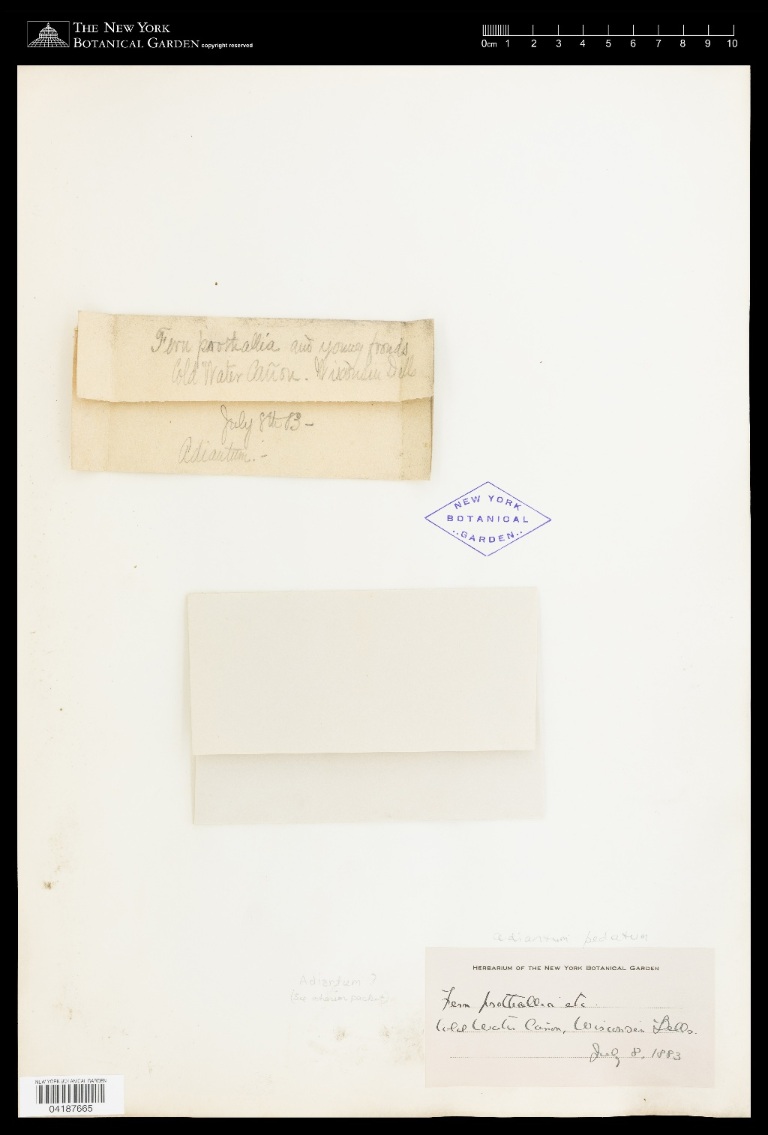 THE NEW YORK
BOTANICAL GARDEN copyright reserved
0cm 1 2 3 4 5 6 7 8 9 10
Fern prothallia and young fronds
Cold Water Cañon. Wisconsin Dells
July 8th 83 -
Adiantum. -
NEW YORK
BOTANICAL
GARDEN
Adiantum pedatum
HERBARIUM OF THE NEW YORK BOTANICAL GARDEN
Fern prothallia etc
Cold Water Cañon, Wisconsin Dells.
July 8, 1883
Adiantum ?
NEW YORK BOTANICAL GARDEN
04187665